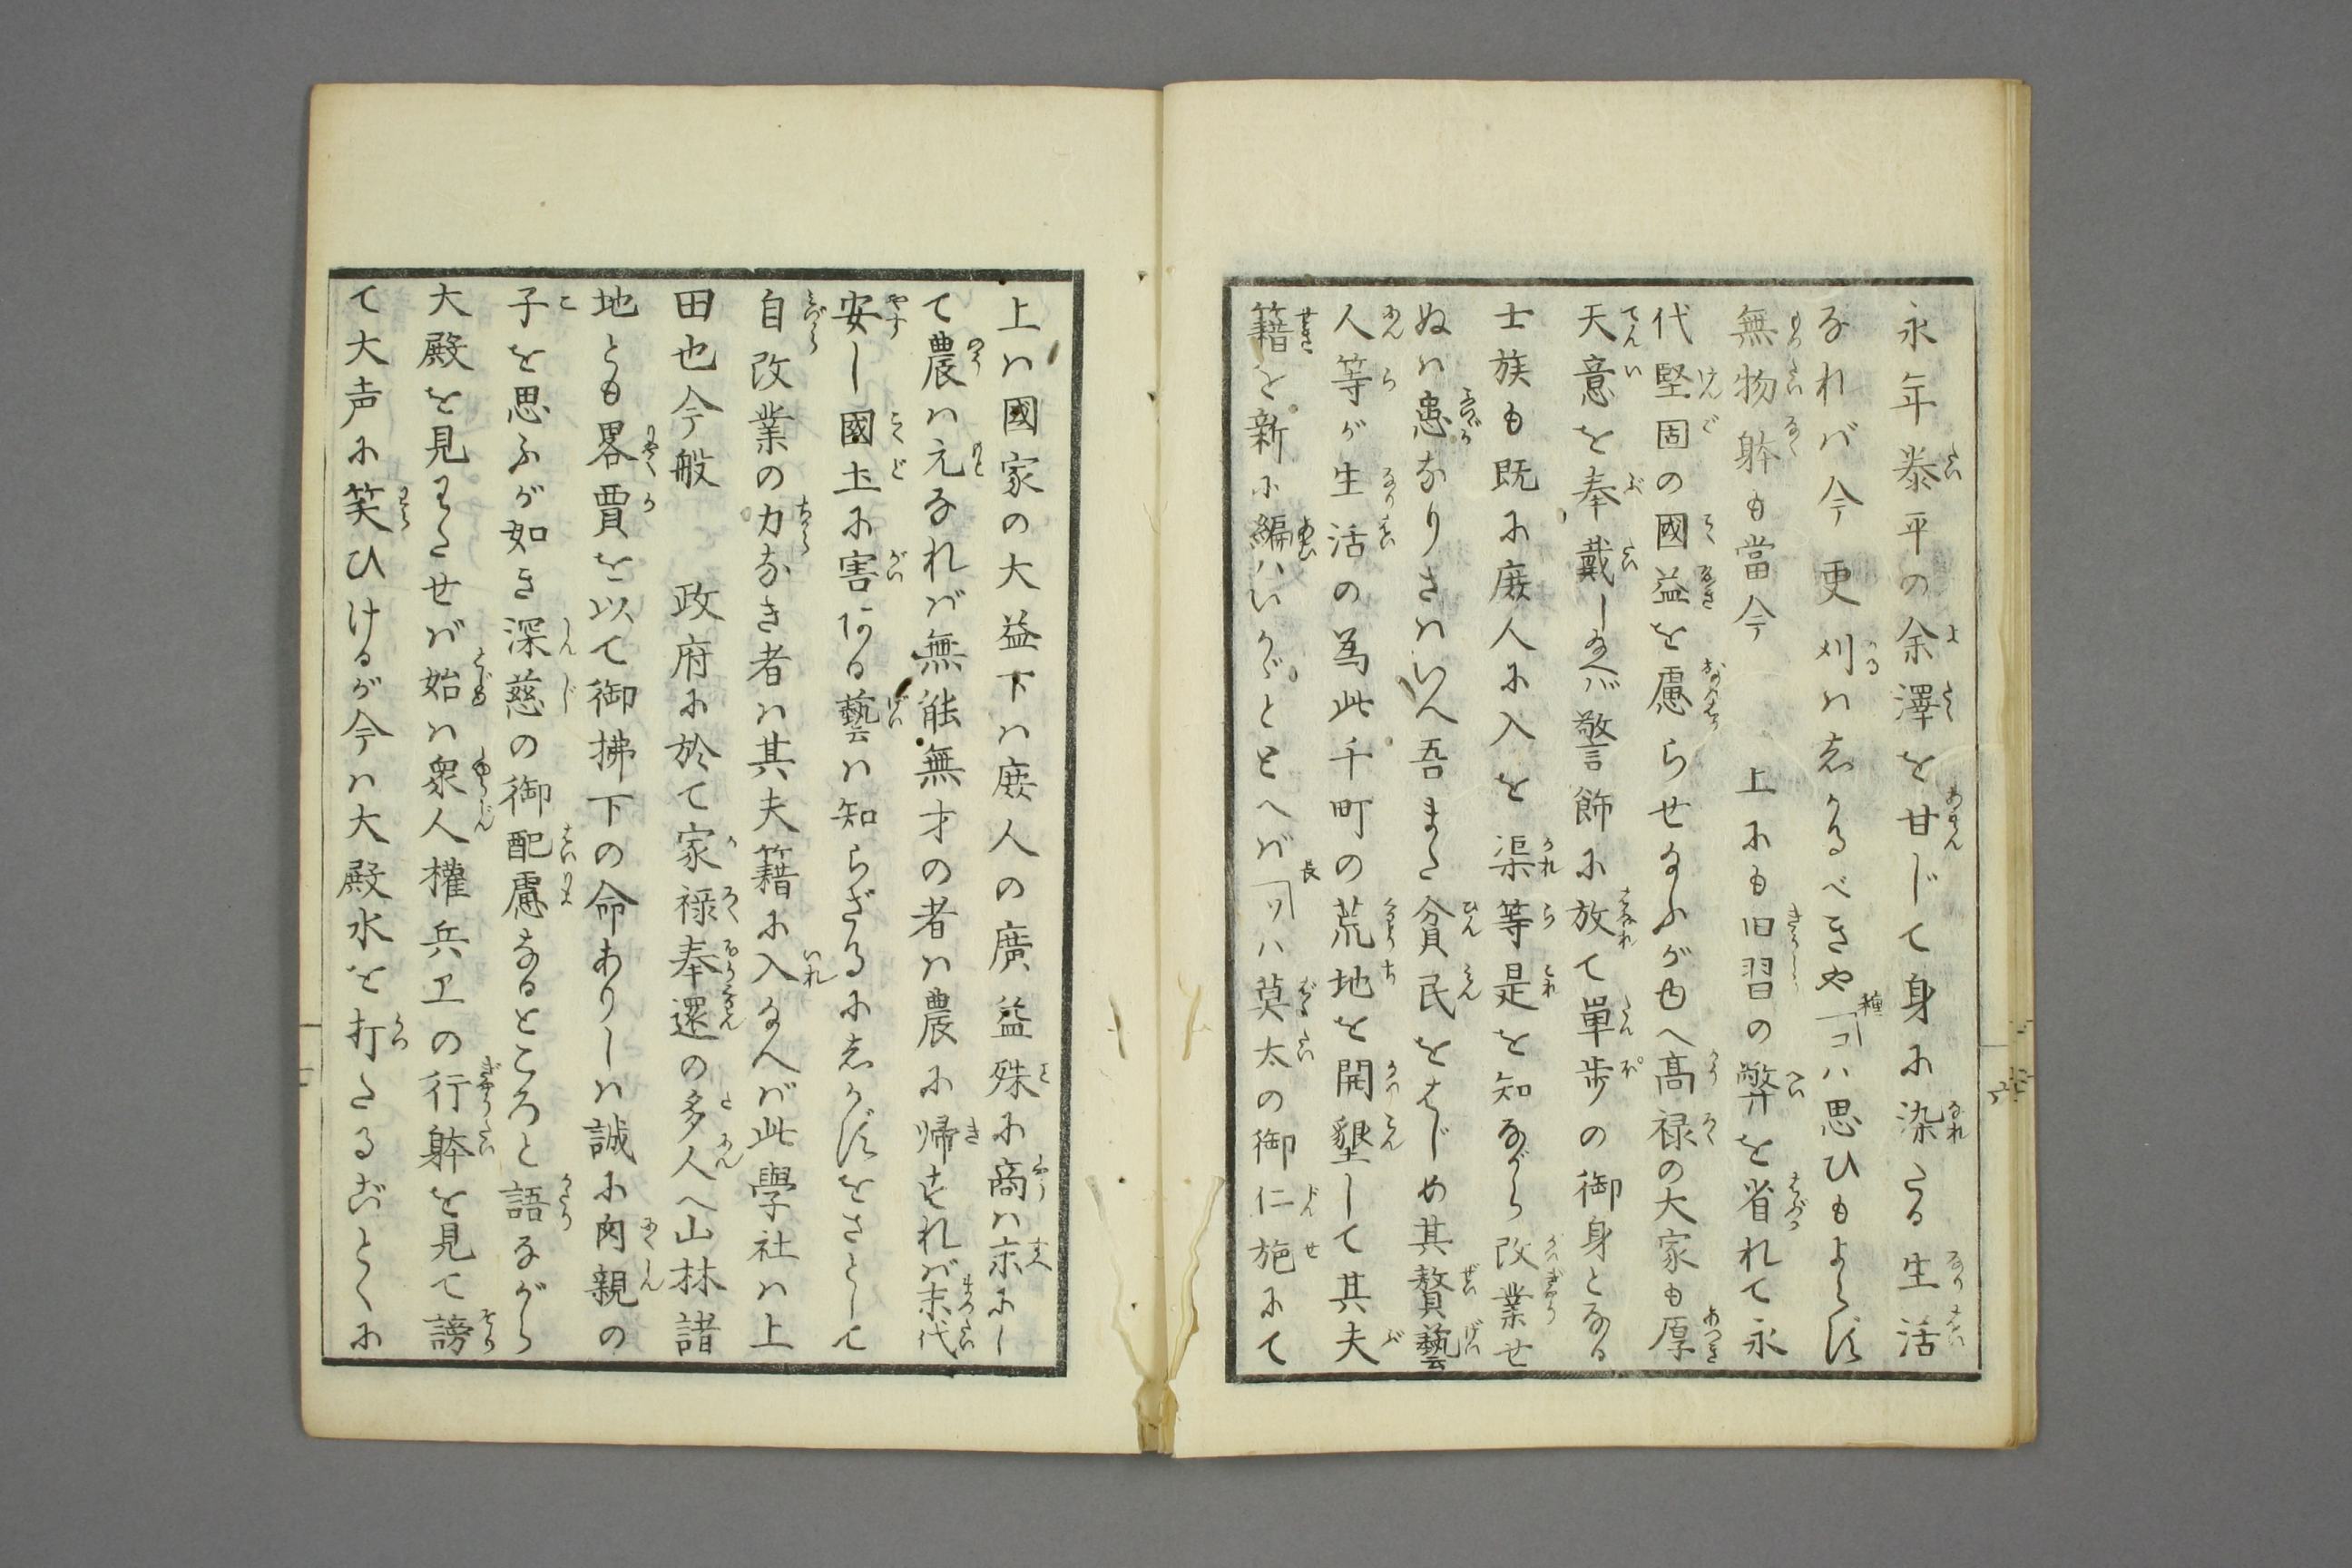 永年泰平の余澤を甘じて身に染たる生活
なれバ今更刈ハあかるべきや「コハ思ひもよらず
無物躰も當今　上にも旧習の弊を省れて永
代堅固の國益を慮らせ給ふが由へ高禄の大家も厚
天意を奉戴し給へバ警餝に放て單歩の御身となる
士族も既に庻人に入を渠等是を知ながら改業せ
ぬハ愚なりさハいへ吾また貧民をはじめ其贅藝
人等が生活の為此千町の荒地を開墾して其夫
籍を新に編ハいかゞととへバ「ソハ莫太の御仁施にて
上ハ國家の大益下ハ庻人の廣益殊に商ハ末にし
て農ハ元なれバ無能無才の者ハ農に帰すれバ末代
安し國土に害ある藝ハ知らざるにあかずをさとして
自改業の力なき者ハ其夫籍に入給へバ此學社ハ上
田也今般　政府に於て家禄奉還の多人へ山林諸
地とも畧賈を以て御拂下の命ありしハ誠に肉親の
子を思ふが如き深慈の御配慮なるところと語ながら
大殿を見わたせバ始ハ衆人權兵卫の行躰を見て謗
て大声に笑ひけるが今ハ大殿水を打たるごとくに